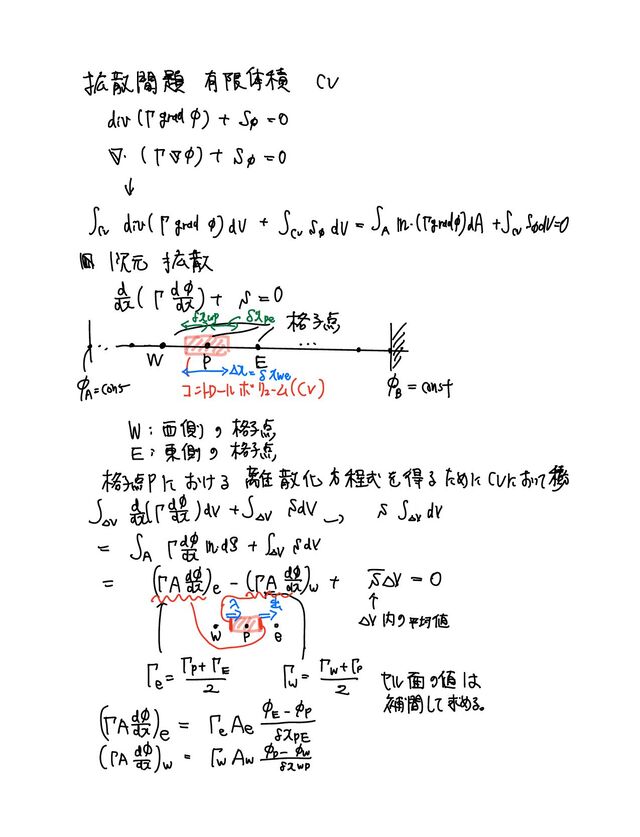 拡散問題 有限体積 CV
div (Γ grad φ) + Sφ = 0
∇・(Γ∇φ) + Sφ = 0
↓
∫CV div(Γ grad φ) dV + ∫CV Sφ dV = ∫A n・(Γgradφ)dA + ∫CV SφdV=0
1次元 拡散
d/dx (Γ dφ/dx) + S = 0
δxwp δxpe 格子点
W P E ...
φA=const Δx=δxwe φB = const
コントロールボリューム(CV)
W : 西側の格子点
E : 東側の格子点
格子点Pにおける離散化方程式を得るためにCVにおいて積
∫ΔV d/dx(Γ dφ/dx) dV + ∫ΔV S dV → S ∫ΔV dV
= ∫A Γ dφ/dx n dS + ∫ΔV S dV
= (ΓA dφ/dx)e - (ΓA dφ/dx)w + S̅ΔV = 0
入 出 ↑
W P E ΔV内の平均値
Γe = (ΓP+ΓE)/2 Γw = (ΓW+ΓP)/2 セル面の値は
補間して求める。
(ΓA dφ/dx)e = Γe Ae (φE - φP)/δxPE
(ΓA dφ/dx)w = Γw Aw (φP - φW)/δxWP